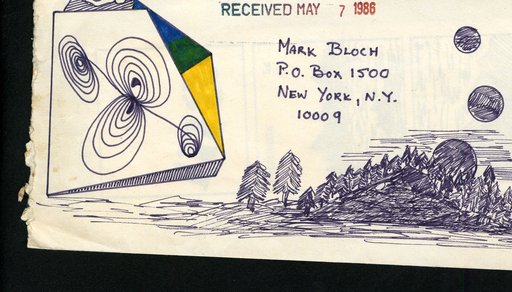 RECEIVED MAY 7 1986
MARK BLOCH
P.O. BOX 1500
NEW YORK, N.Y.
10009